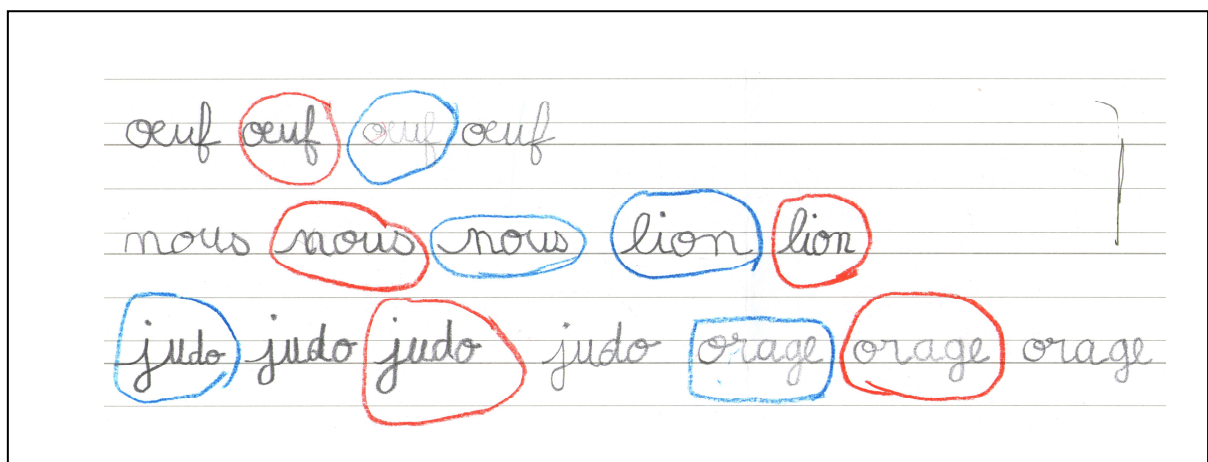 oeuf oeuf oeuf oeuf
nous nous nous lion lion
judo judo judo judo orage orage orage